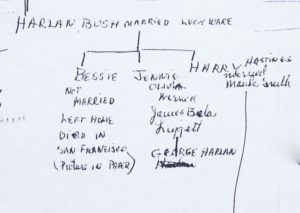 HARLAN BUSH MARRIED LUCY WARE
BESSIE JENNIE HARRY HASTINGS
NOT MARRIED
LEFT HOME
DIED IN
SAN FRANCISCO
(PICTURE IN PAPER)
OLIVIA
James
GEORGE HARLAN
married
Maude Smith